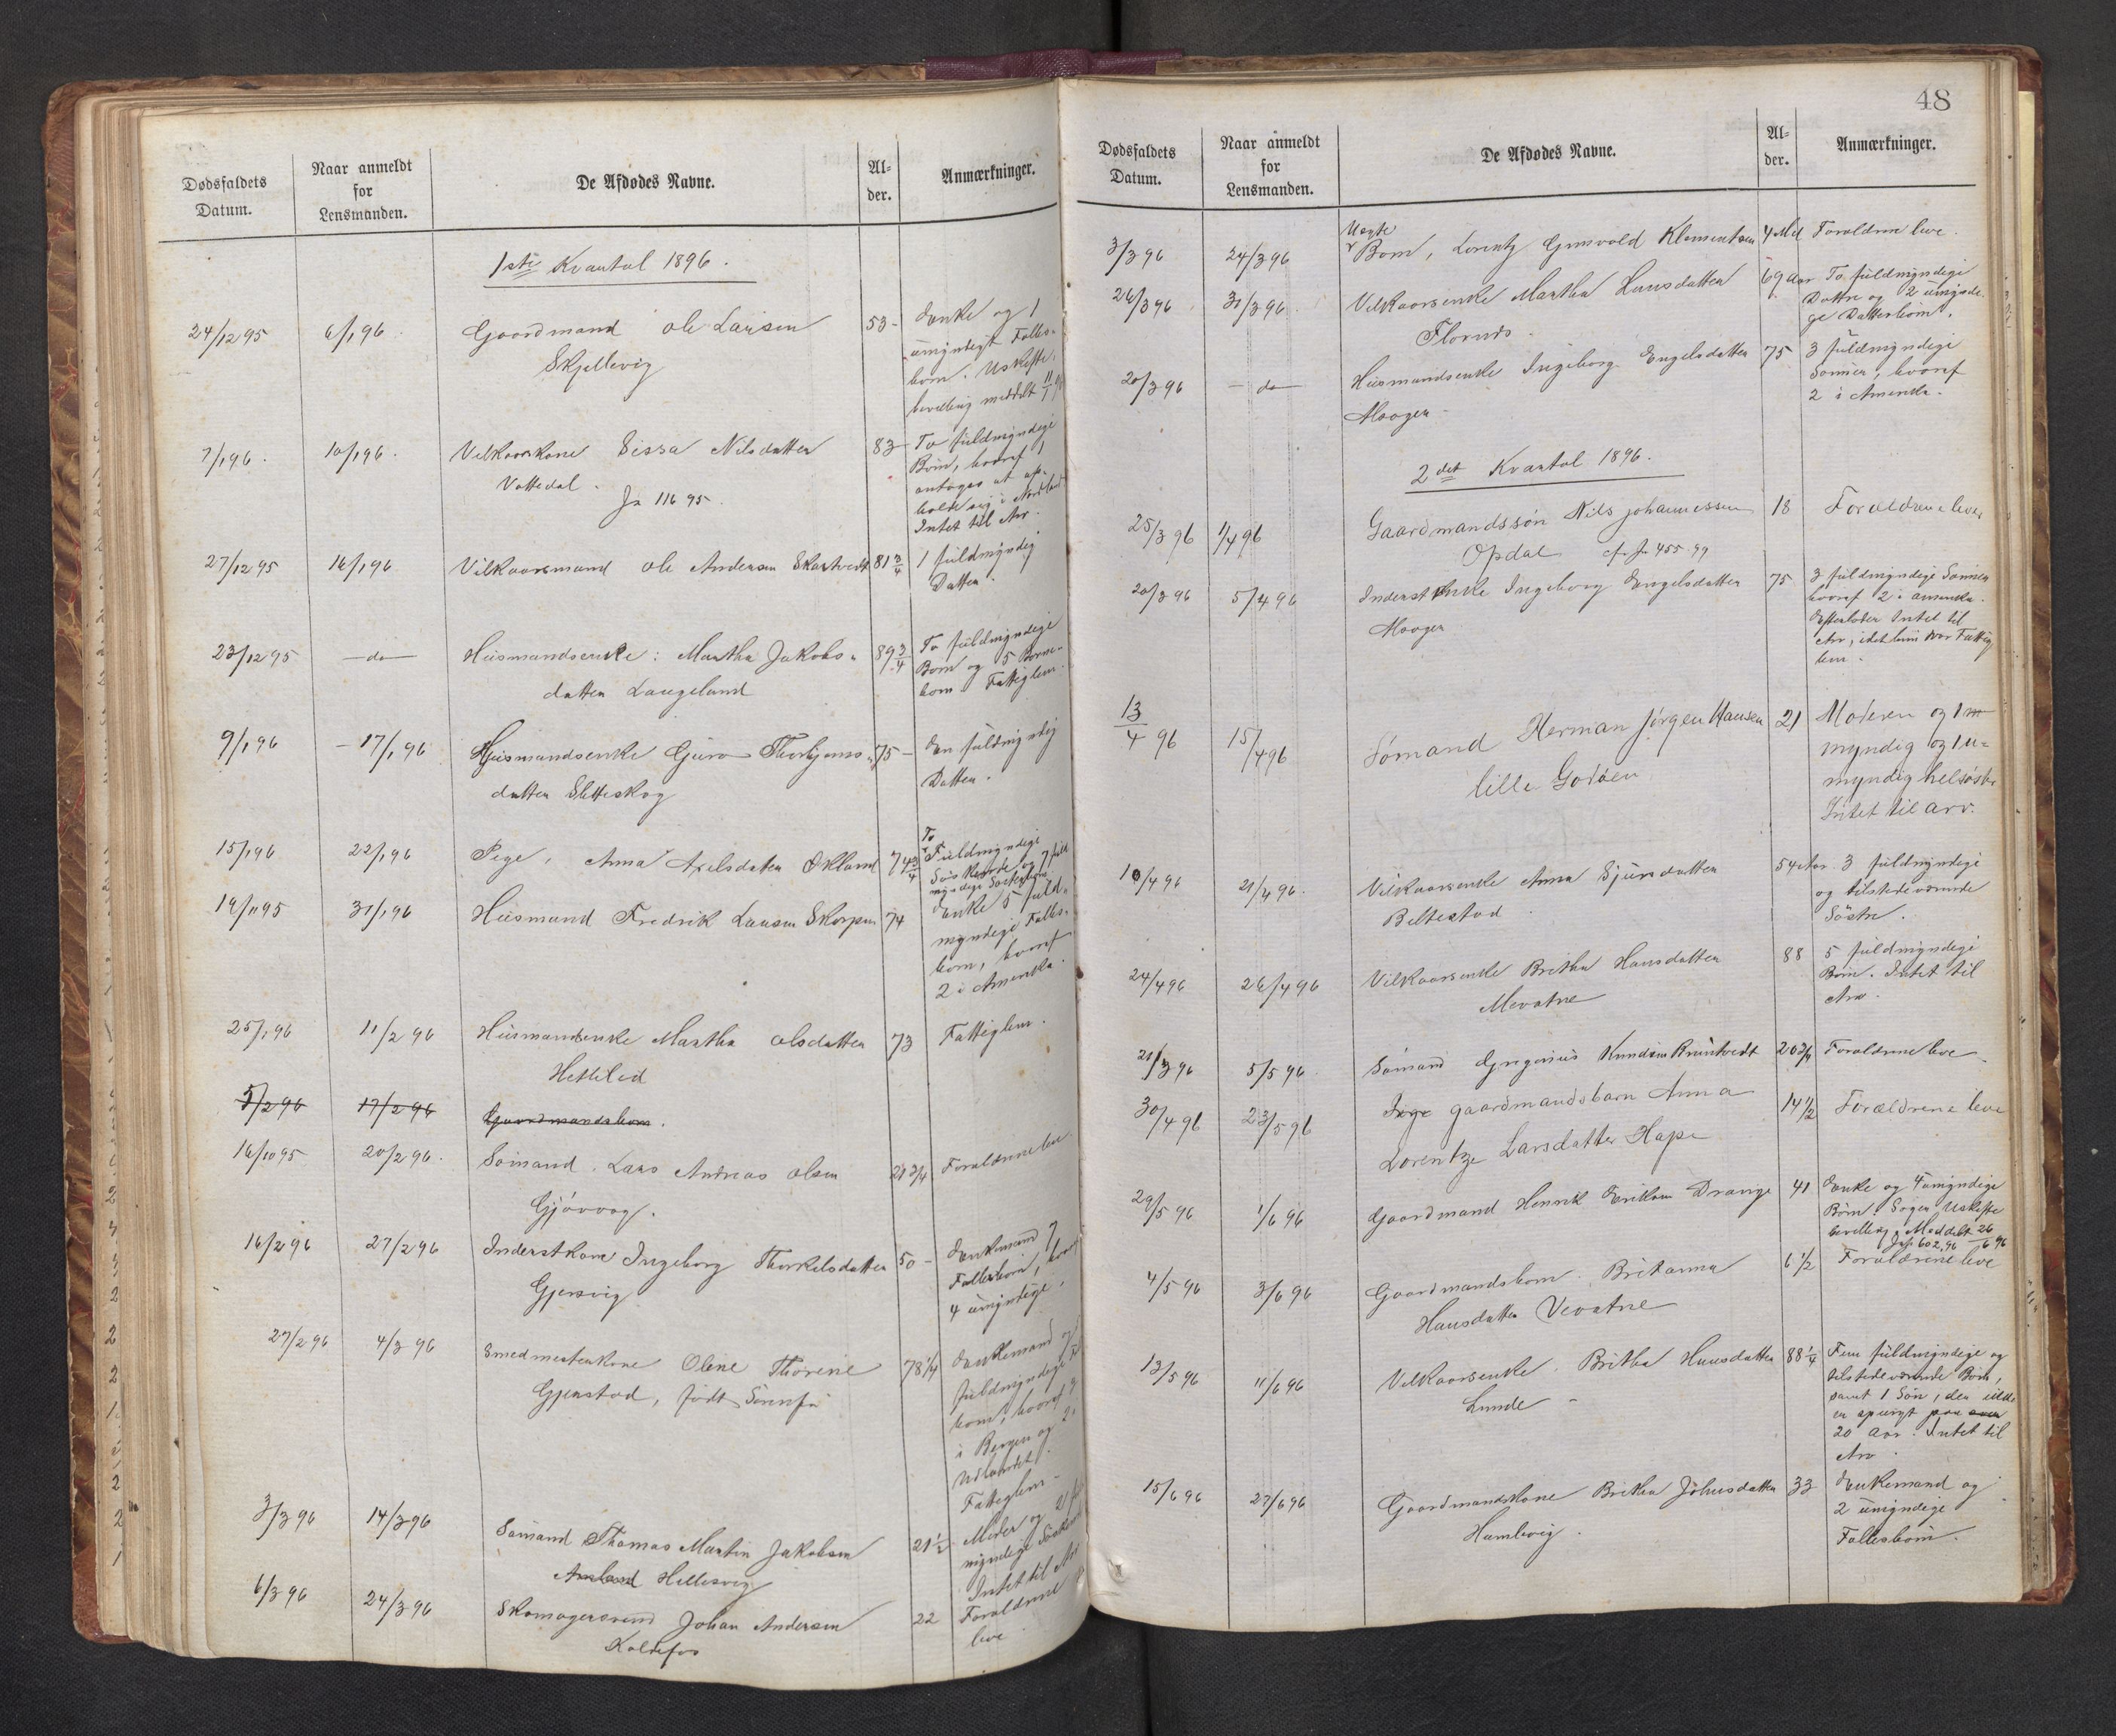 Dødsfaldets
Datum.
Naar anmeldt
for
Lensmanden.
De Afdødes Navne.
Al-
der.
Anmærkninger.
1ste Kvartal 1896.
24/12 95 6/1 96 Gaardmand Ole Larsen 53 Enke og 1
Skjellevig umyndigt Fælles-
barn. Uskifte-
bevilling meddelt 11/1 96
7/1 96. 10/1 96. Vilkaarskone Sissa Nilsdatter 83 To fuldmyndige
Vottedal. Børn, hvoraf 1
Ja 116 95. antages at op-
holde sig i Nordland
Intet til Arv.
27/12 95 16/1 96 Vilkaarsmand Ole Andersen Skartvedt 81 3/4 1 fuldmyndig
Datter.
23/12 95 — do — Husmandsenke: Martha Jakobs- 89 3/4 To fuldmyndige
datter Langeland Børn og 5 Børne-
børn Fattiglem
9/1 96 — 17/1 96 Husmandsenke Guro Thorbjørns- 75 — En fuldmyndig
datter Sletteskog Datter.
15/1 96 22/1 96 Pige, Anna Axelsdatter Økland 74 3/4 To
Fuldmyndige
Søskende og 7 fuld
myndige Søsterbørn
19/11 95 31/1 96 Husmand Fredrik Larsen Skorpen 74 Enke 5 fuld-
myndige Fælles-
børn, hvoraf
2 i Amerika.
25/1 96 11/2 96 Husmandsenke Martha Olsdatter 73 Fattiglem.
Hetteled
5/2 96 17/2 96 Gaardmandsbarn.
16/10 95 20/2 96. Sømand. Lars Andreas Olsen 21 3/4 Forældrene leve
Gjøvvog.
16/2 96 27/2 96 Inderstkone Ingeborg Thorkelsdatter 50 — Enkemand 7
Gjersvig Fællesbørn, hvoraf
4 umyndige.
27/2 96 4/3 96 Smedmesterkone Oline Thorine 78 1/4 Enkemand og
Gjerstad, født fuldmyndige
børn, hvoraf
i Bergen og 2 i
Udlandet.
Fattiglem
3/3 96 14/3 96 Sømand Thomas Martin Jakobsen 21 1/2 Moder og 2
Hillesvig myndige Søskende
Intet til Arv
6/3 96 24/3 96 Skomagersvend Johan Andersen 22 Forældrene
Koldefos leve
48
Dødsfaldets
Datum.
Naar anmeldt
for
Lensmanden.
De Afdødes Navne.
Al-
der.
Anmærkninger.
Uægte
3/3 96 24/3 96 Barn, Lorentz Grunvold Klementsen 4 Md Forældrene leve.
26/3 96 31/3 96 Vilkaarsenke Martha Hansdatter 69 Aar To fuldmyndige
Flornes Døttre og 2 umyndi-
ge Datterbørn.
20/3 96 — do — Husmandsenke Ingeborg Engelsdatter 75 3 fuldmyndige
Moogen Sønner, hvoraf
2 i Amerika.
2det Kvartal 1896.
25/3 96 1/4 96 Gaardmandssøn Nils Johannessen 18 Forældrene lever
Opdal cfr. Ja 455. 99
20/3 96 5/4 96 Inderstenke Ingeborg Engelsdatter 75 3 fuldmyndige Sønner
Moogen hvoraf 2 i Amerika.
Efterlader Intet til
Arv, idet hun var Fattig
lem.
13/4 96 15/4 96 Sømand Herman Jørgen Hansen 21 Moderen og 1 m
lille Godøen myndig og 1 u-
myndig helsøster
Intet til Arv.
10/4 96 21/4 96. Vilkaarsenke Anna Sjursdatter 54 Aar 3 fuldmyndige
Beltestad og tilstedeværende
Søstre.
24/4 96 26/4 96 Vilkaarsenke Bretha Hansdatter 88 5 fuldmyndige
Mevatne Børn. Intet til
Arv.
21/3 96 5/5 96 Sømand Grigorius Knudsen Bruntvedt 20 3/4 Forældrene leve
30/4 96 23/5 96 gaardmandsbarn Anna 14 1/2 Forældrene leve
Lorentze Larsdatter Hope
29/5 96 1/6 96 Gaardmand Henrik Eriksen Drange 41 Enke og 4 umyndige
Børn. Søger Uskifte
bevilling. Meddelt 26/6 96
Ja 602. 96
4/5 96 3/6 96 Gaardmandsbarn. Britanna 6 1/2 Forældrene leve
Hansdatter Vevatne
13/5 96 11/6 96 Vilkaarsenke. Britha Hansdatter 88 1/4 Fem fuldmyndige og
Lunde tilstedeværende Børn,
samt 1 Søn, der ikke
er spurgt paa over
20 Aar. Intet til
Arv.
15/6 96 27/6 96 Gaardmandskone Britha Johnsdatter 33 Enkemand og
Humlevig. 2 umyndige
Fællesbørn.